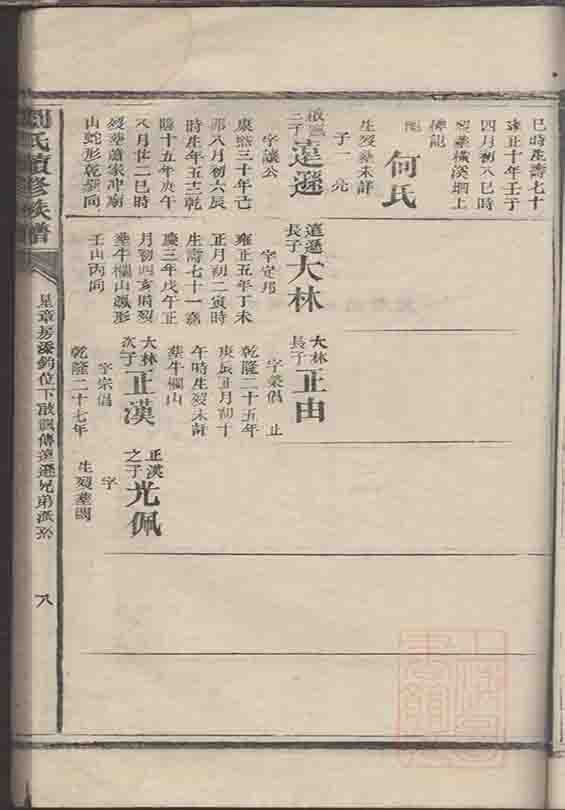 巳時生壽七十
雍正十年壬子
四月初八巳時
歿葬橫溪垇上
何氏
生歿葬未詳
子一元
啟
二子
遠遜
字讓公
康熙三十年己
八月初六辰
時生年五十三乾
隆十五年庚午
八月廿二巳時
歿葬蕭家冲廟
山蛇形乾巽向
遠遜
長子
大林
字定邦
雍正五年丁未
正月初二寅時
生壽七十一嘉
慶三年戊午正
月初四亥時歿
葬牛欄山
形
壬山丙向
大林
長子
正由
字榮倡 止
乾隆二十五年
庚辰正月初十
午時生歿未詳
葬牛欄山
大林
次子
正漢
字宗倡
乾隆二十七年
正漢
之子
光佩
字
生歿葬闕
劉氏續修族譜
星章房添鈞位下啟
傳遠遜兄弟派系
八